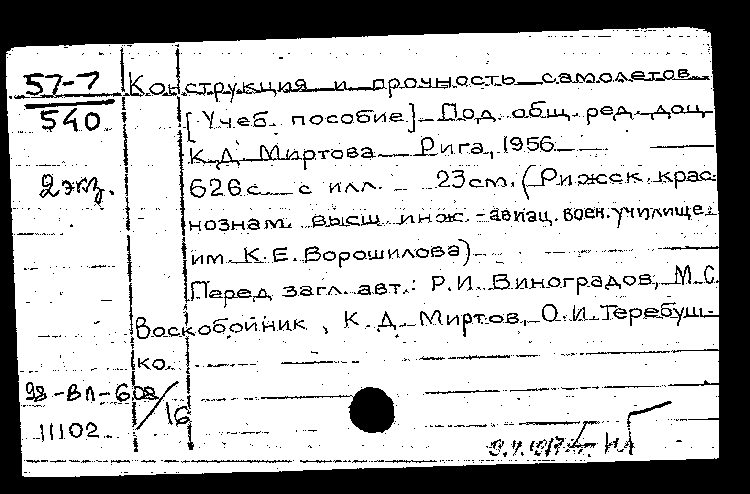 57-7 Конструкция и прочность самолетов
540 [Учеб. пособие] Под общ. ред. доц.
К.Д. Миртова Рига, 1956
2 экз. 626с. с илл. 23см. (Рижск. крас-
нознам. высш инж.-авиац. воен. училище
им. К.Е. Ворошилова)
Перед загл. авт.: Р.И. Виноградов, М.С.
Воскобойник, К.Д. Миртов, О.И. Теребуш-
ко.
98-ВЛ-608/16
11102